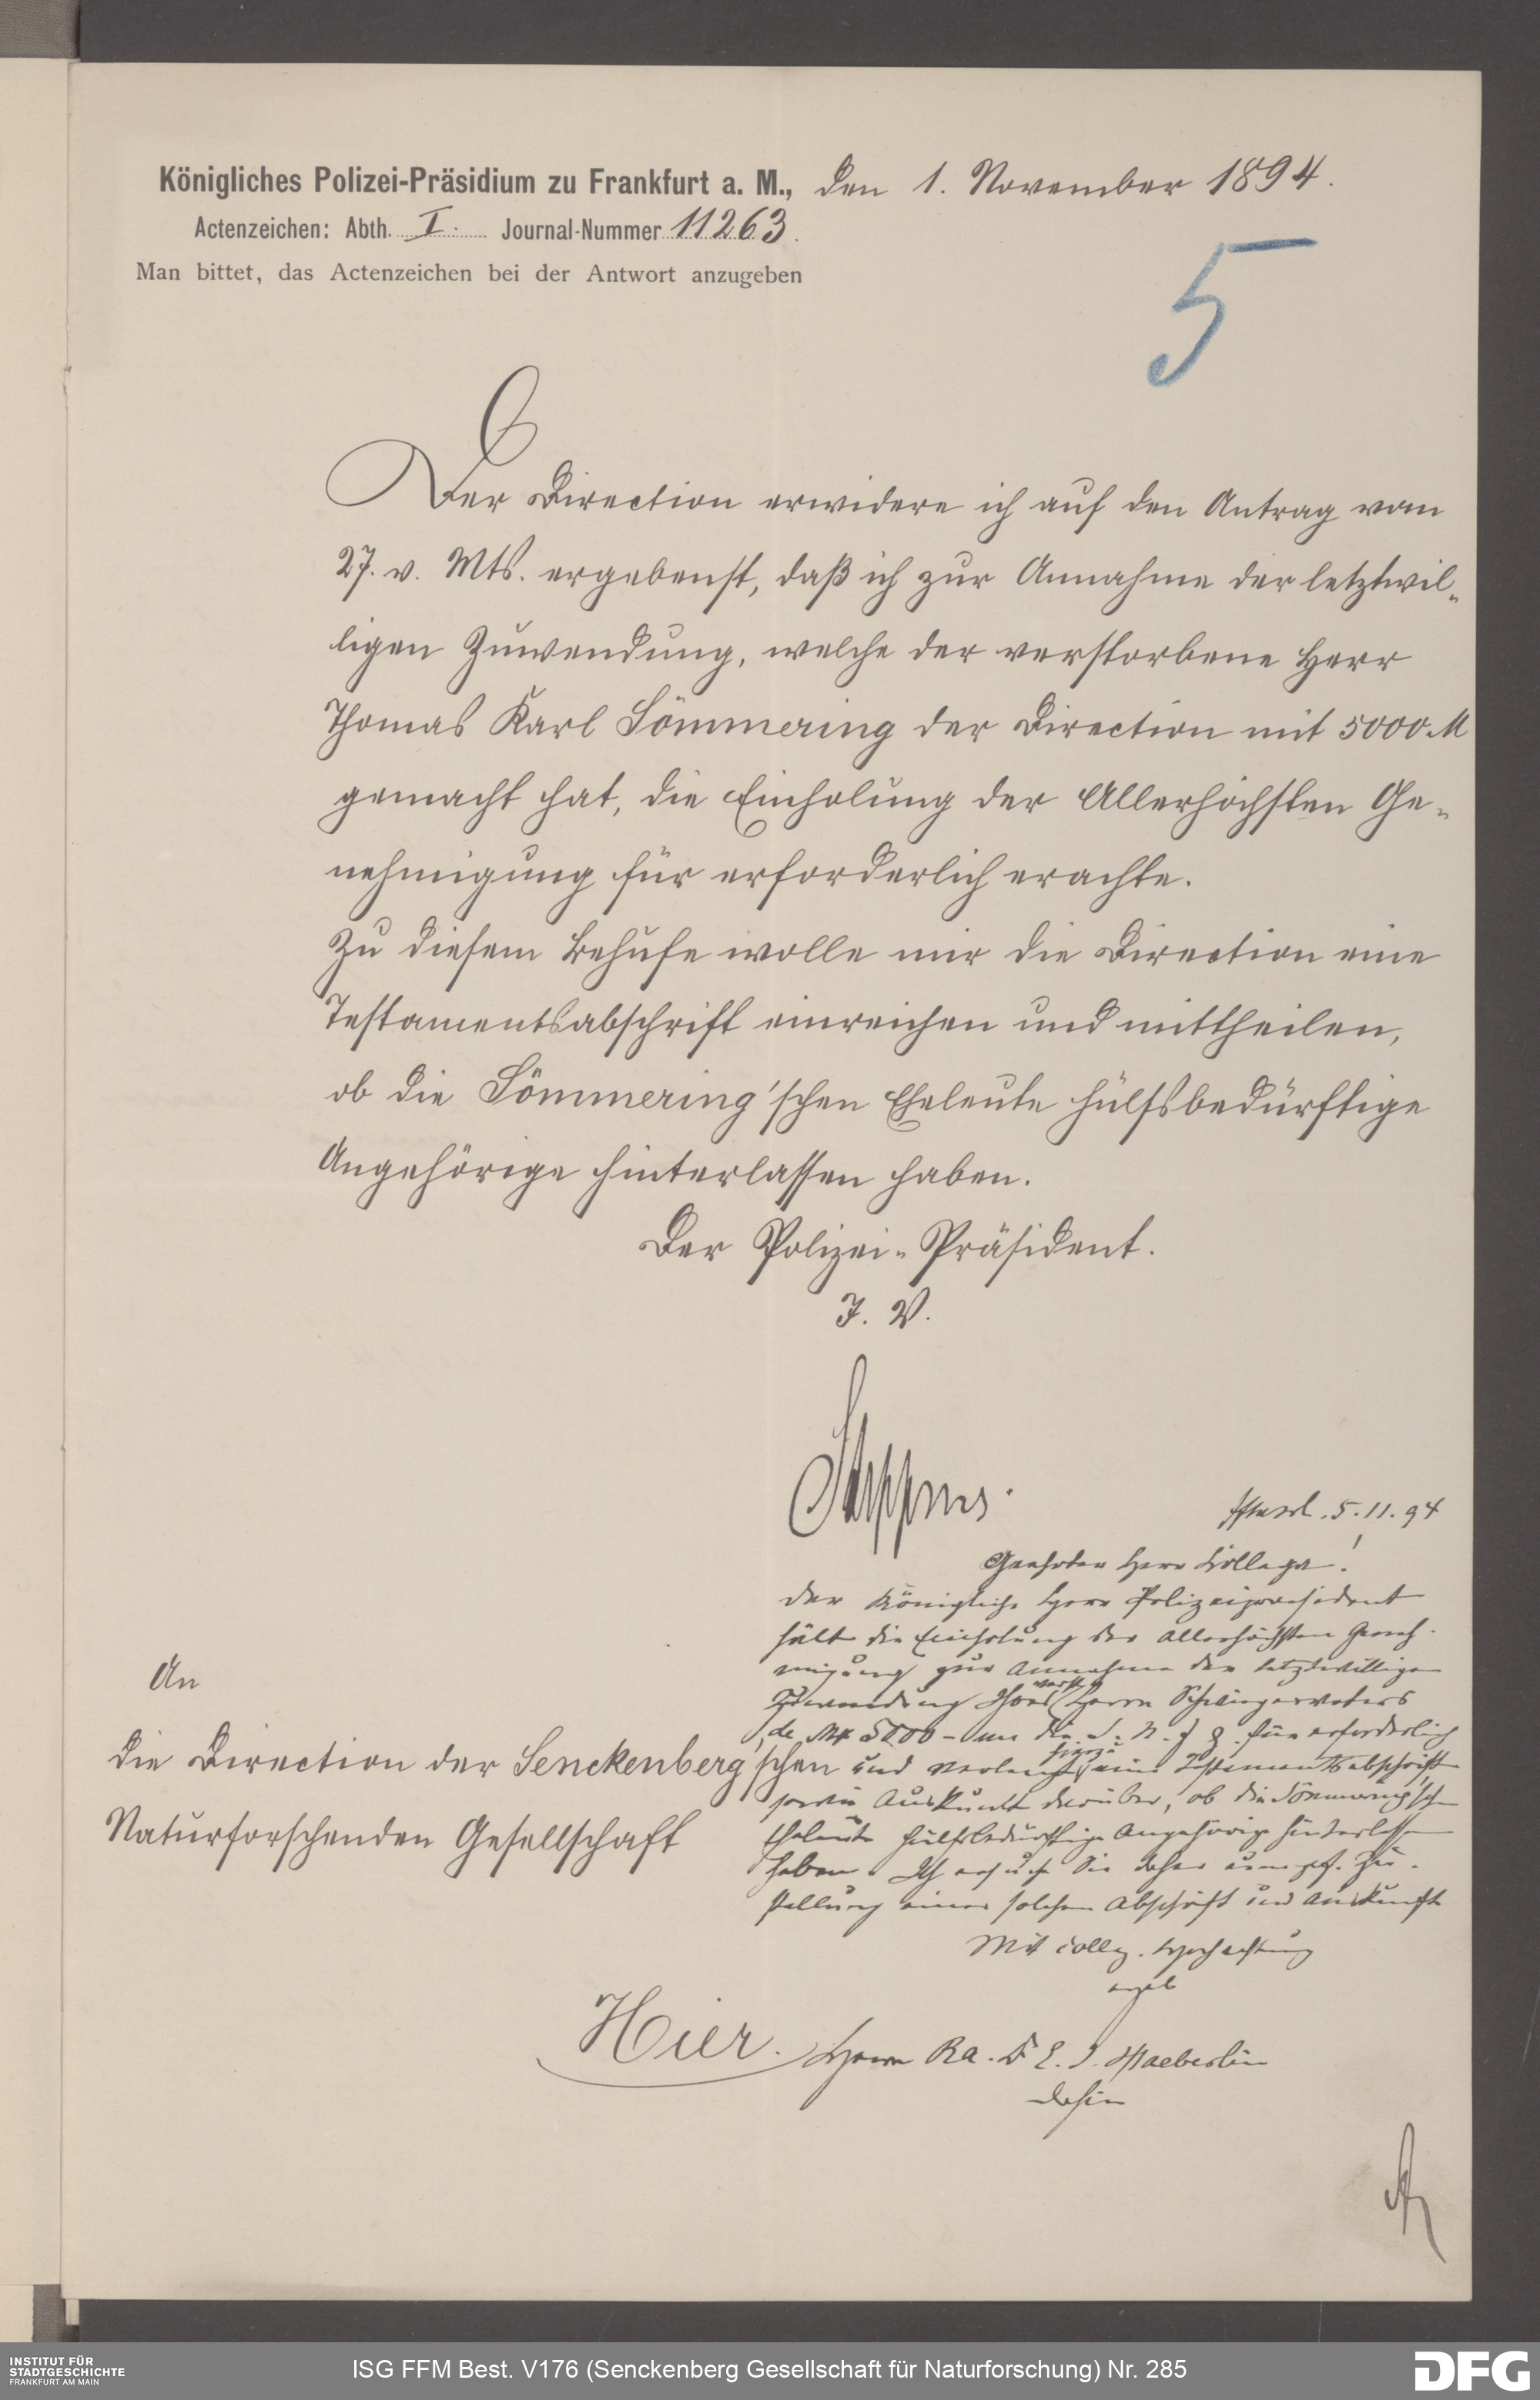 Königliches Polizei-Präsidium zu Frankfurt a. M., den 1. November 1894.
Actenzeichen: Abth. I. Journal-Nummer 11263.
Man bittet, das Actenzeichen bei der Antwort anzugeben
5
Der Direction erwidere ich auf den Antrag vom
27. v. Mts. ergebenst, daß ich zur Annahme der letztwil-
ligen Zuwendung, welche der verstorbene Herr
Thomas Karl Sömmering der Direction mit 5000 M
gemacht hat, die Einholung der Allerhöchsten Ge-
nehmigung für erforderlich erachte.
Zu diesem Behufe wolle mir die Direction eine
Testamentsabschrift einreichen und mittheilen,
ob die Sömmering'schen Eheleute hülfsbedürftige
Angehörige hinterlassen haben.
Der Polizei-Präsident.
I. V.
An
die Direction der Senckenberg'schen
Naturforschenden Gesellschaft
Hier.
5.11.94
Geehrter Herr Kollege!
der Königliche Herr Polizeipraesident
hält die Einholung der allerhöchsten Geneh-
migung zur Annahme der letztwilligen
Zuwendung Ihres verst. Herrn Schwiegervaters
de Mk 5000 - an die S. N. G. für erforderlich
und verlangt hierzu eine Testamentsabschrift
sowie Auskunft darüber, ob die Sömmering'schen
Eheleute hülfsbedürftige Angehörige hinterlassen
haben. Ich ersuche Sie daher um gef. Zu-
stellung einer solchen Abschrift und Auskunft
Mit colleg. Hochachtung
ergeb
Herrn Ra. Dr E. J. Haeberlin
dahier
ISG FFM Best. V176 (Senckenberg Gesellschaft für Naturforschung) Nr. 285
INSTITUT FÜR
STADTGESCHICHTE
FRANKFURT AM MAIN
DFG